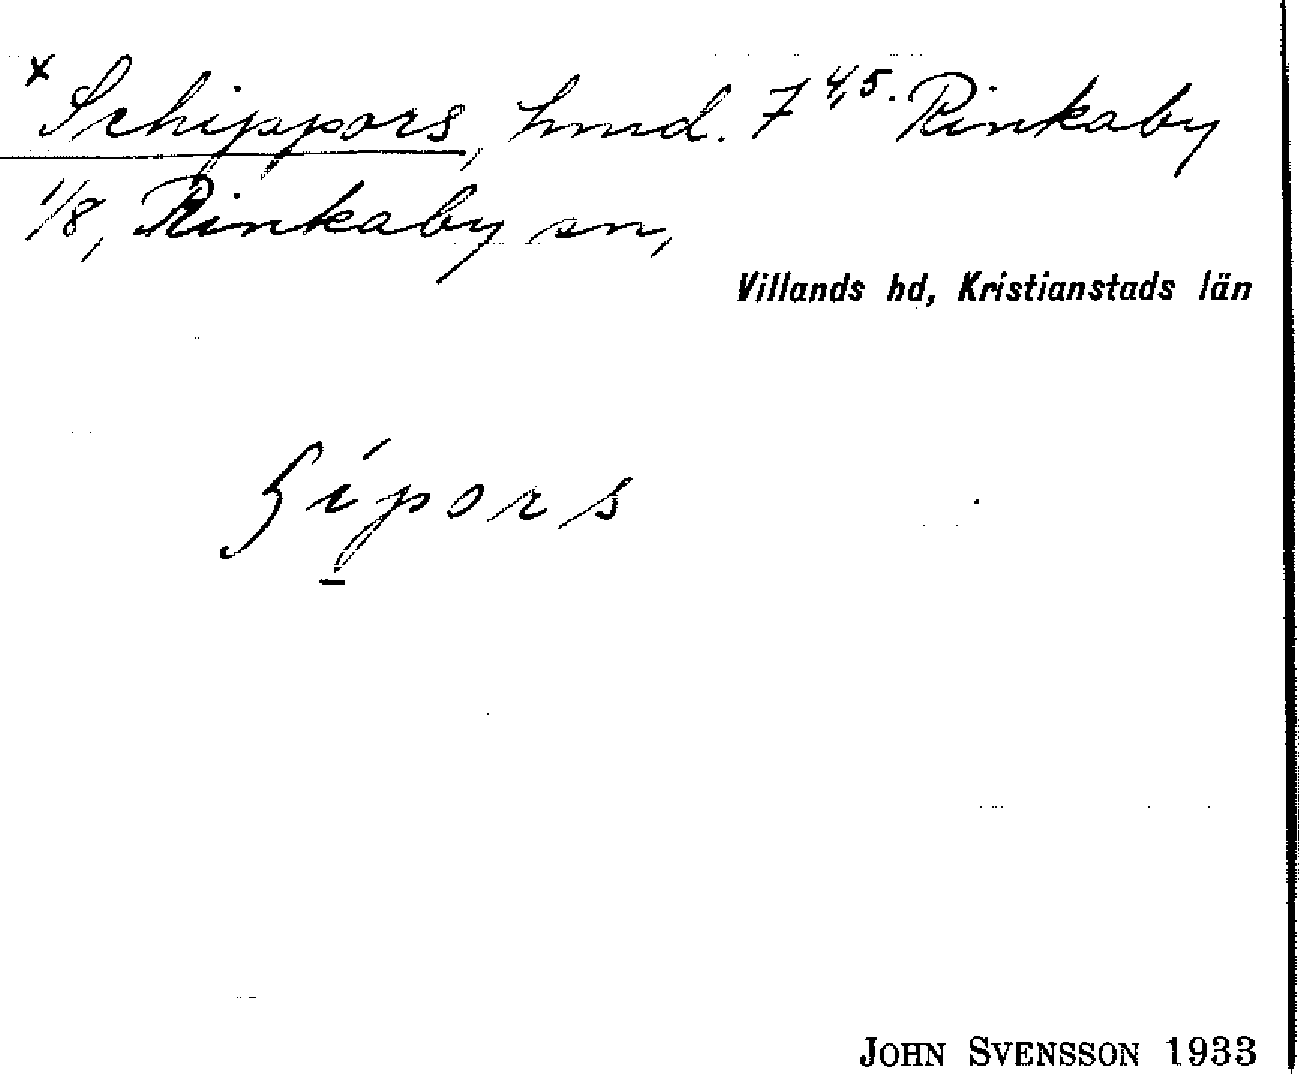 x Schippors, hmd. 7 4,5. Rinkaby
1/8, Rinkaby sn,
Villands hd, Kristianstads län
John Svensson 1933